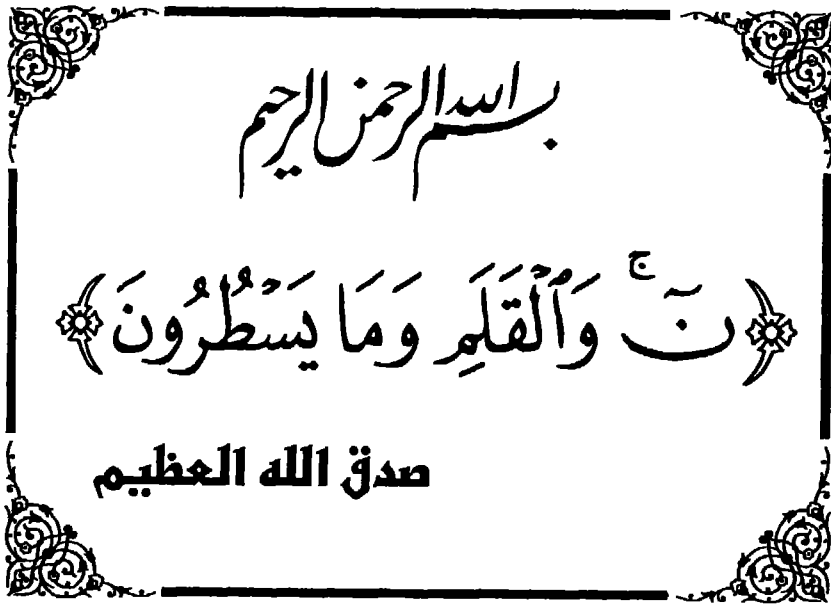 بسم الله الرحمن الرحيم
﴿نٓ ۚ وَٱلْقَلَمِ وَمَا يَسْطُرُونَ﴾
صدق الله العظيم